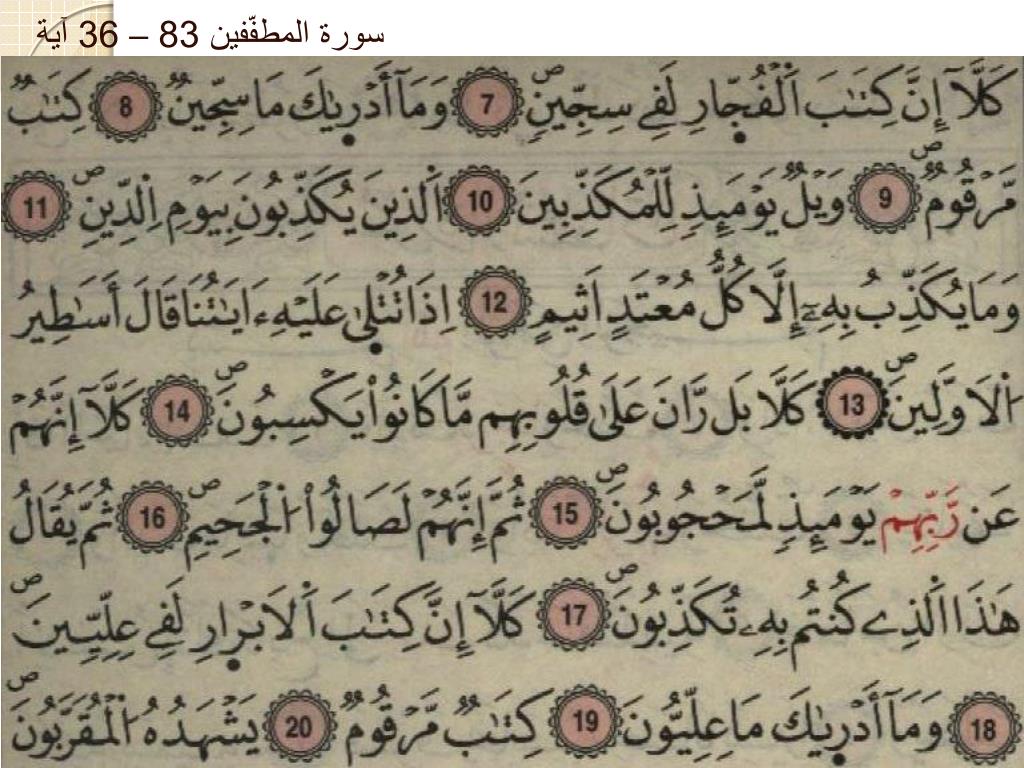 سورة المطفّفين 83 – 36 آية
كَلَّآ إِنَّ كِتَٰبَ اَ۬لْفُجّ۪ارِ لَفِے سِجِّينٖۖ 7 وَمَآ أَدْر۪يٰكَ مَا سِجِّينٞ 8 كِتَٰبٞ
مَّرْقُومٞۖ 9 وَيْلٞ يَوْمَئِذٖ لِّلْمُكَذِّبِينَ 10 اَ۬لذِينَ يُكَذِّبُونَ بِيَوْمِ اِ۬لدِّينِۖ 11
وَمَا يُكَذِّبُ بِهِۦٓ إِلَّا كُلُّ مُعْتَدٍ اَثِيمٍ 12 اِذَا تُتْل۪يٰ عَلَيْهِ ءَايَٰتُنَا قَالَ أَسَٰطِيرُ
اُ۬لَاوَّلِينَۖ 13 كَلَّا بَل رَّانَ عَلَىٰ قُلُوبِهِم مَّا كَانُواْ يَكْسِبُونَۖ 14 كَلَّآ إِنَّهُمْ
عَن رَّبِّهِمْ يَوْمَئِذٖ لَّمَحْجُوبُونَۖ 15 ثُمَّ إِنَّهُمْ لَصَالُواْ اُ۬لْجَحِيمِۖ 16 ثُمَّ يُقَالُ
هَٰذَا اَ۬لذِے كُنتُم بِهِۦ تُكَذِّبُونَۖ 17 كَلَّآ إِنَّ كِتَٰبَ اَ۬لَابْر۪ارِ لَفِے عِلِّيِّينَۖ
18 وَمَآ أَدْر۪يٰكَ مَا عِلِّيُّونَ 19 كِتَٰبٞ مَّرْقُومٞ 20 يَشْهَدُهُ اُ۬لْمُقَرَّبُونَۖ